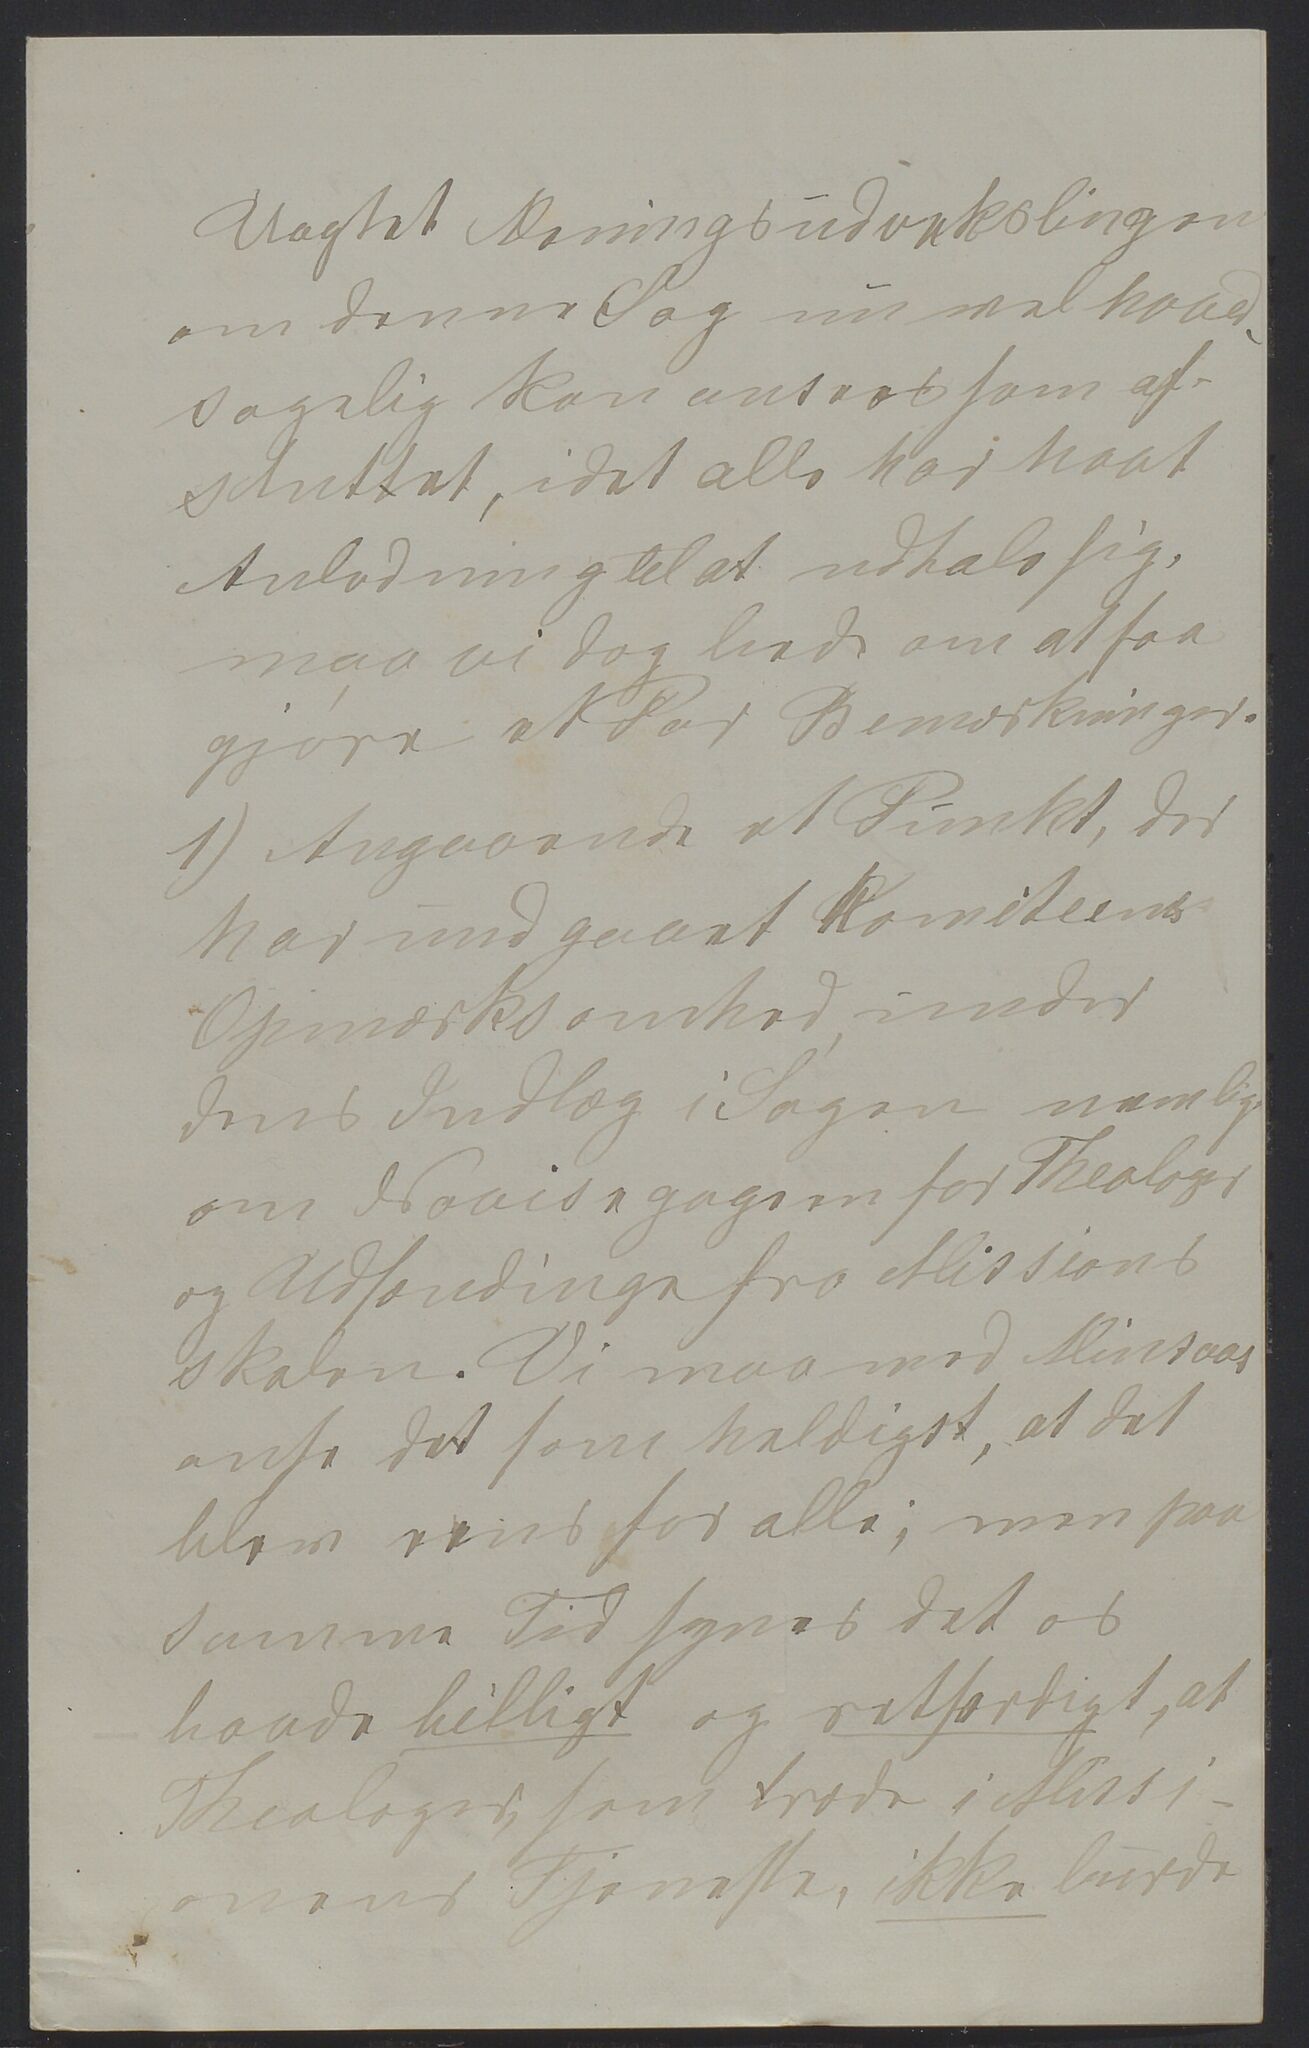 Uagtet Meningsudvekslingen
om denne Sag nu vel hoved
sagelig kan ansees som af-
sluttet, idet alle har havt
Anledning til at udtale sig,
maa vi dog bede om at faa
gjøre et Par Bemærkninger.
1) Angaaende et Punkt, der
har undgaaet Komiteens
Opmærksomhed, under
dens Indlæg i Sagen nemlig
om Novisegagen for Theologer
og Udsendinge fra Missions
skolen. Vi maa med Minsaas
anse det som heldigst, at det
blev eens for alle; men paa
samme Tid synes det os
baade billigt og retfærdigt, at
Theologer, som træde i Missi-
onens Tjeneste, ikke burde